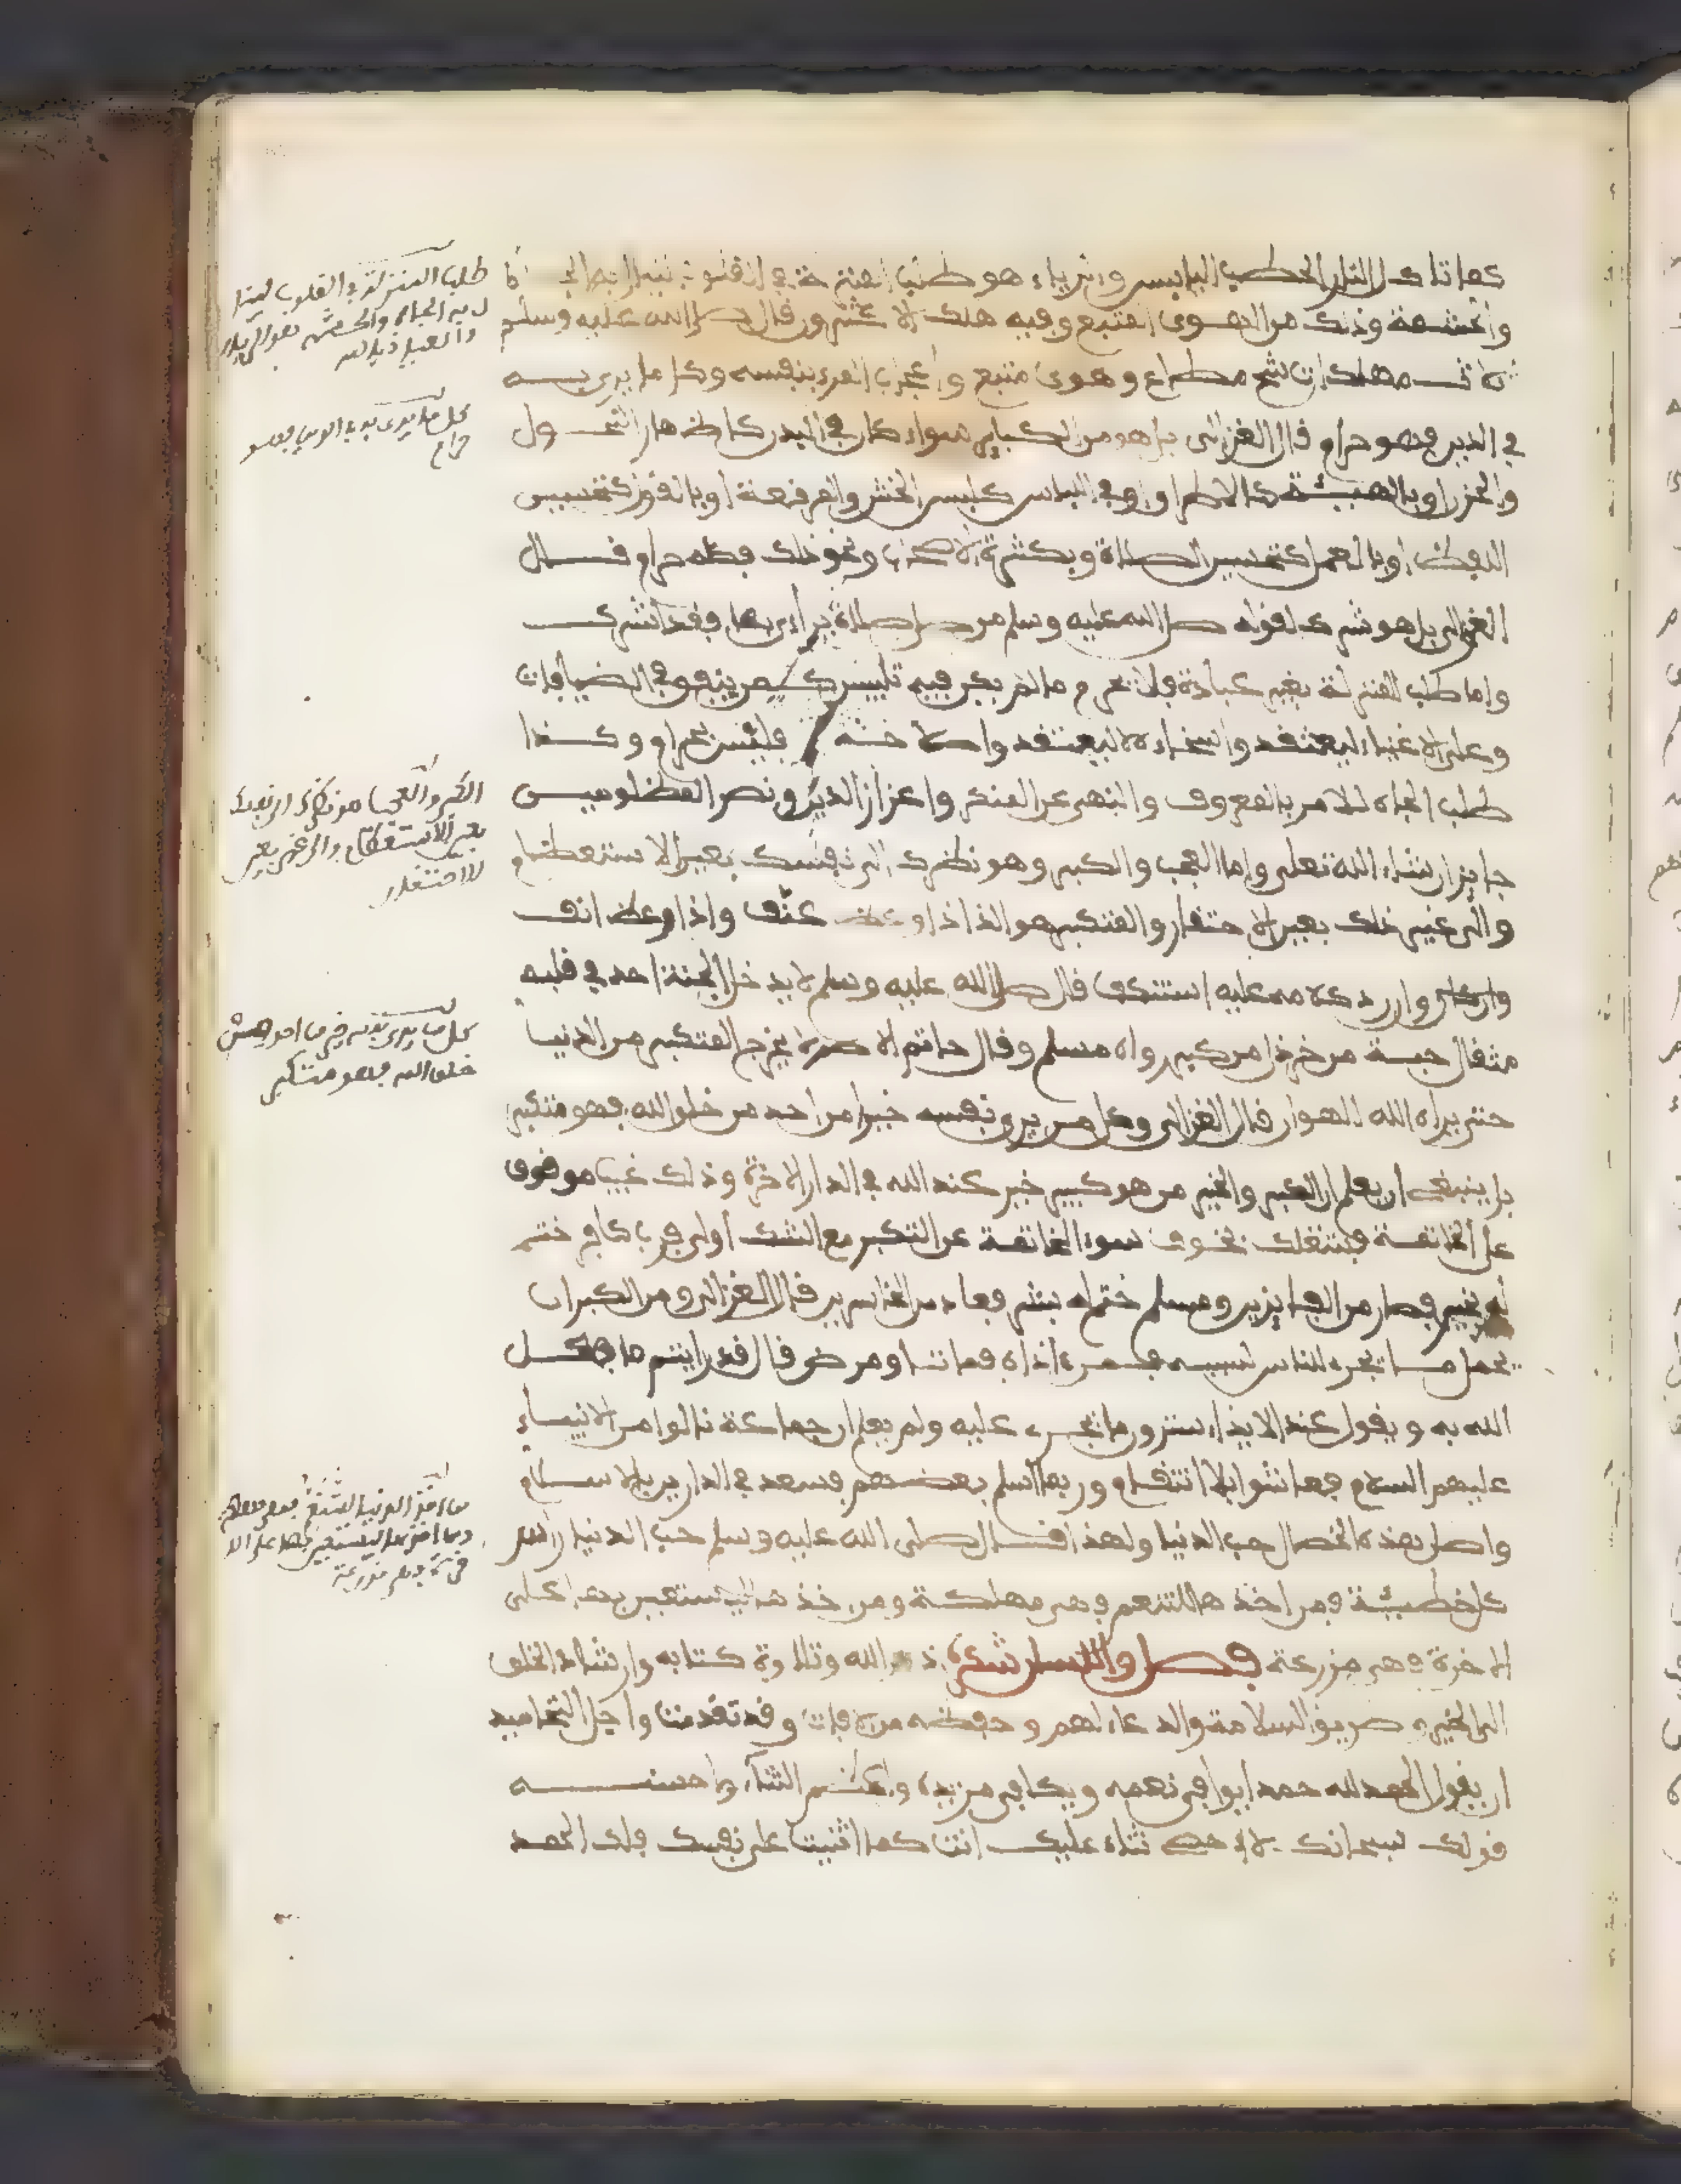 كما تاكل النار الحطب اليابس والرياء هو طلب المنزلة في القلوب لينال بها الجاه
والحشمة وذلك من الهوى المتبع وفيه هلك الاكثرون قال صلى الله عليه وسلم
ثلاث مهلكات شح مطاع وهوى متبع واعجاب المرء بنفسه وكل ما يرى به
في الدين فهو حرام قال الغزالي بل هو من الكباير سواء كان في البدن كاظهار النحول
والحزن او بالهيئة كالاطراق او في اللباس كلبس الخشن والمرقعة او بالقول كتحسين
اللفظ او بالعمل كتحسين الصلاة وبكثرة الاصحاب ونحو ذلك فكله حرام قال
الغزالي بل هو شرك لقوله صلى الله عليه وسلم من صلى صلاة يراءى بها فقد اشرك
واما طلب المنزلة بغير عبادة فلا تحرم ما لم يكن فيه تلبيس كمن ينفق في الضيافات
وعلى الاغنياء ليعتقد والسخاء لا ليعتقد واصلاحه فليس بحرام وكذا
طلب الجاه للامر بالمعروف والنهي عن المنكر واعزاز الدين ونصر المظلومين
جايز ان شاء الله تعلى واما العجب والكبر وهو نظرك الى نفسك بعين الاستعظام
والى غير ذلك بعين الاحتقار والمتكبر هو الذ اذا وعظ عنف واذا وعظ انف
وان رد كلامه عليه استنكف قال صلى الله عليه وسلم لا يدخل الجنة احد في قلبه
مثقال حبة من خردل من كبر رواه مسلم وقال حاتم الاصم لا يخرج المتكبر من الدنيا
حتى يراه الله الهوان قال الغزالي وكل من يرى نفسه خيرا من احد من خلق الله فهو متكبر
بل ينبغي ان يعلم ان الكبير والخير من هو كبير خير عند الله في الدار الاخرة وذلك غيب موقوف
على الخاتمة فيشغلك بخوف سوء الخاتمة عن التكبر مع الشك اولى فرب كافر ختم
له بخير فصار من الفايزين ومسلم ختم له بشر فعاد من الخاسرين قال الغزالي ومن الكبر ان
يحمل ما يجري للناس لسببه فمرء اذاه فمات او مرض قال قد رايتم ما فعل
الله به ويقول عند الايذاء سترون ما يجرى عليه ولم يعلم ان جماعة نالوا من الانبياء
عليهم السلام فماتوا بلا انتقام وربما اسلم بعضهم فسعد في الدارين بالاسلام
واصل بهذه الخصال حب الدنيا ولهذا قال صلى الله عليه وسلم حب الدنيا راس
كل خطيئة فمن اخذها للتنعم فهي مهلكة ومن اخذها ليستعين بها على
الاخرة فهي مزرعة فصل واللسان شكره ذكر الله وتلاوة كتابه وارشاد الخلق
الى الخير و طريق السلامة والدعاء لهم وحفظه من الافات وقد تقدمت واجل التحاميد
ان يقول الحمد لله حمدا يوافي نعمه ويكافي مزيده واعظم الثناء واحسنه
قولك سبحانك لا احصي ثناء عليك انت كما اثنيت على نفسك فلك الحمد
طلب المنزلة في القلوب لينا
ل به الجاه والحشمة هو الرياء
كل ما يرى به في الدين فهو
حرام
الكبر والعجب هو نظرك الى نفسك
بعين الاستعظام والى غير بعين
الاحتقار
كل من يرى نفسه خيرا من احد من
خلق الله فهو متكبر
من اخذ الدنيا للتنعم فهي مهلكة
ومن اخذها ليستعين بها على الا
خرة فهي مزرعة